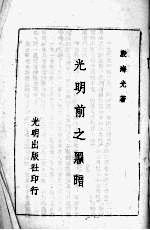 殷海光著
光明前之黑暗
光明出版社印行